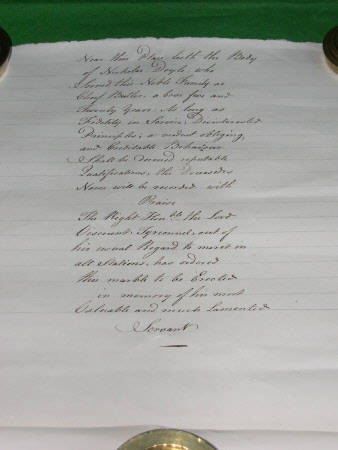 Near this Place lieth the Body
of Nicholas Doyle, who
Served this Noble Family as
Chief Butler, above five and
Twenty Years. As long as
Fidelity in Service, Disinterested
Principles; a modest obliging,
and Creditable Behaviour
Shall be deemed reputable
Qualifications, the Deceaseds
Name will be recorded with
Praise
The Right Honble the Lord
Viscount Tyrconnel, out of
his usual Regard to merit in
all Stations, has ordered
this marble to be Erected
in memory of his most
Valuable and much Lamented
Servant